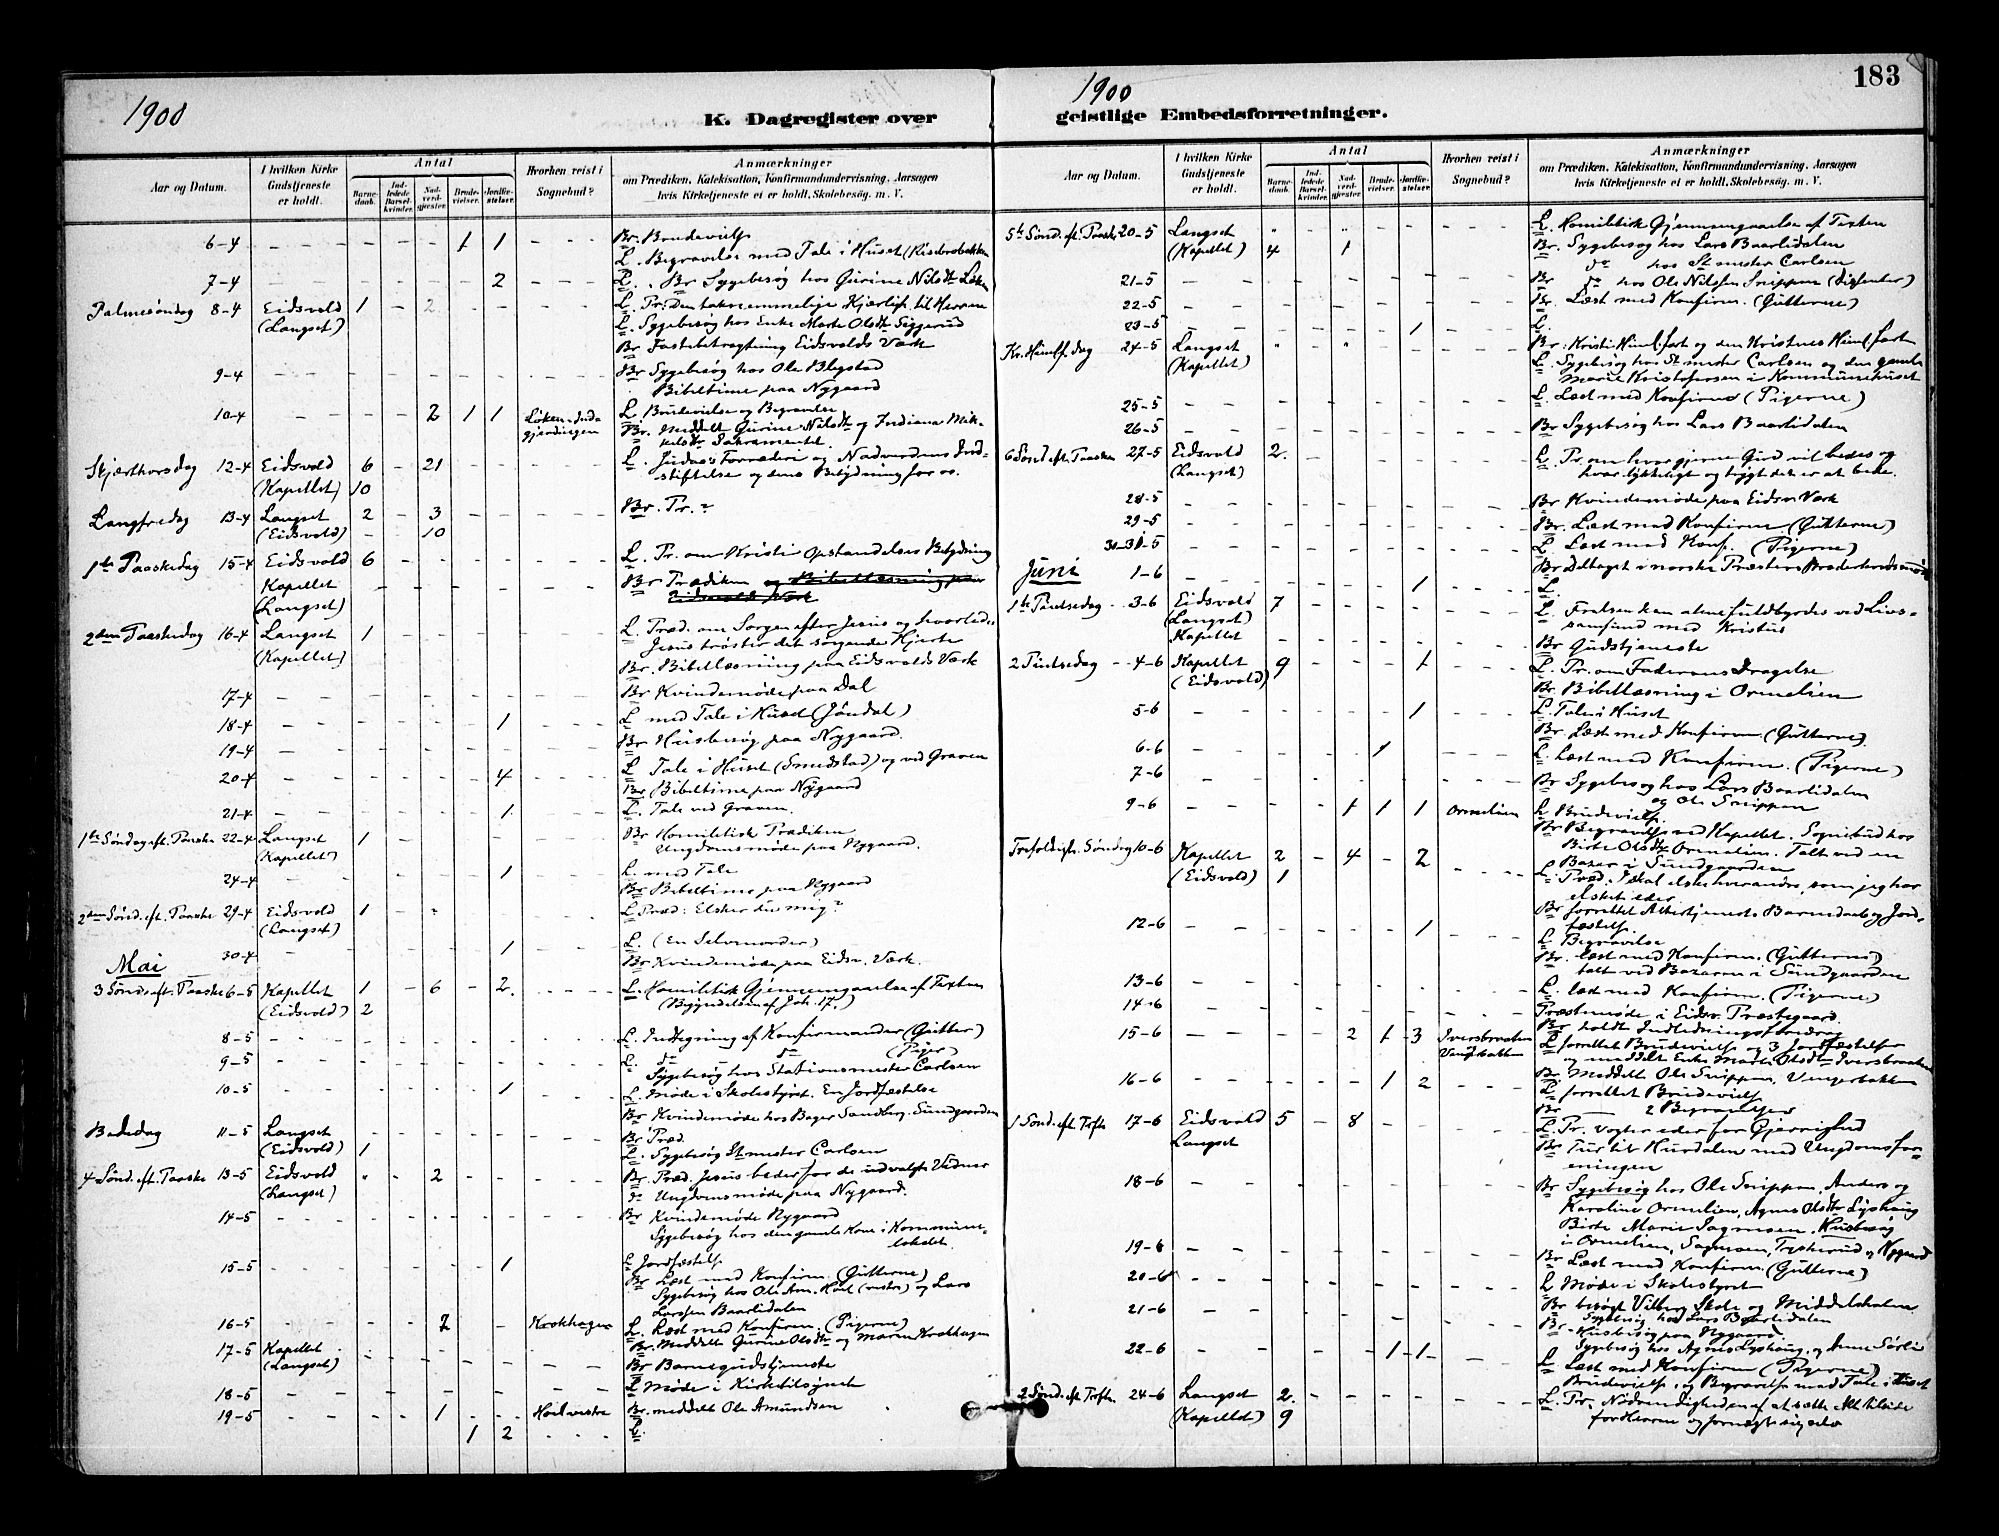 1900
K. Dagregister over
Aar og Datum.
I hvilken Kirke Gudstjeneste er holdt.
Antal
Barnedaab.
Indledede Barselkvinder.
Nadverdgjester.
Brudevielser.
Jordfæstelser.
Hvorhen reist i Sognebud?
Anmærkninger
om Prædiken, Katekisation, Konfirmandundervisning, Aarsagen hvis Kirketjeneste ei er holdt, Skolebesøg. m. V.
6-4 1 1 Br. Brudevielse
L. Begravelse med Tale i Huset
7-4 2 L. Br Sygebesøg hos Gurine Nilsdtr Løken
Palmesøndag 8-4 Eidsvold 1 2 L. Pr. Den taknemmelige Kjærligh. til Herren
(Langset) L. Sygebesøg hos Enke Marte Olsdtr
Br Fastebetragtning Eidsvolds Værk
9-4 Br Sygebesøg hos Ole Blegstad
Bibeltime paa Nygaard
10-4 2 1 1 L Brudevielse og Begravelse
Br. Meddelt Gurine Nilsdtr og Indiana Mik-
kelsdtr Sakramentet.
Skjærthorsdag 12-4 Eidsvold 6 21 L. Judas's Forræderi og Nadverdens Ind-
(Kapellet) 10 stiftelse og dens Betydning for os.
Langfredag 13-4 Langset 2 3 Br. Pr.?
(Eidsvold) 10
1ste Paaskedag 15-4 Eidsvold 6 L. Pr. om Kristi Opstandelses Betydning
Kapellet Br Prædiken og Bibellæsning paa
(Langset) Eidsvolds Værk
2den Paaskedag 16-4 Langset 1 L Præd. om Sorgen efter Jesus og hvorledes
(Kapellet) Jesus trøster det sørgende Hjerte
Br. Bibellæsning paa Eidsvolds Værk
17-4 Br Kvindemøde paa Dal
18-4 1 L med Tale i Huset (Jøndal)
19-4 Br Husbesøg paa Nygaard.
20-4 4 L Tale i Huset (Smedstad) og ved Graven
Br Bibeltime paa Nygaard
21-4 1 L. Tale ved Graven.
1ste Søndag eft. Paaske 22-4 Langset 1 Br Homiletisk Prædiken
(Kapellet) Ungdomsmøde paa Nygaard.
24-4 1 L. med Tale
Br Bibeltime paa Nygaard
2den Sønd. eft. Paaske 29-4 Eidsvold 1 L Præd: Elsker du mig?
(Langset)
30-4 1 L. (En Selvmorder)
Br Kvindemøde paa Eidsv. Værk.
Mai
3 Sønd. eft. Paaske 6-5 Kapellet 1 6 2 L. Homiletisk Gjennemgaaelse af Texten
(Eidsvold) 2 (Begyndelsen af Joh. 17.)
8-5 L. Indtegning af Konfirmander (Gutter)
9-5 L. do do (Piger)
Sygebesøg hos Stationsmester Carlsen
10-5 1 L. Møde i Skolestyret. En Jordfæstelse
Br Kvindemøde hos Bager Sandberg. Sundgaarden
Bededag 11-5 Langset Br Præd.
(Eidsvold) 1 L. Sygebesøg Stmester Carlsen
4 Sønd. eft. Paaske 13-5 Eidsvold " 2 Br. Præd. Jesus beder for de udvalgte Vidner
(Langset) do Ungdomsmøde paa Nygaard.
14-5 Br Kvindemøde Nygaard
Sygebesøg hos den gamle Kone i Kommune-
lokalet.
15-5 1 L Jordfæstelse
Br Læst med Konfirm. (Gutterne)
Sygebesøg hos Ole Am. Hoel (vestre) og Lars
Larssen Baarlidalen
16-5 2 Krokhagen L. Læst med Konfirm. (Pigerne)
Br. Meddelt Gurine Olsdtr og Maren Krokhagen
17-5 Kapellet Br Barnegudstjeneste
(Langset) L Møde i Kirketilsynet
18-5
19-5 1 Hoel vestre Br. meddelt Ole Amundsen
1 2 L.
1900
183
geistlige Embedsforretninger.
Aar og Datum.
I hvilken Kirke Gudstjeneste er holdt.
Antal
Barnedaab.
Indledede Barselkvinder.
Nadverdgjester.
Brudevielser.
Jordfæstelser.
Hvorhen reist i Sognebud?
Anmærkninger
om Prædiken, Katekisation, Konfirmandundervisning, Aarsagen hvis Kirketjeneste ei er holdt, Skolebesøg. m. V.
5te Sønd. eft. Paaske 20-5 Langset L. Homiletisk Gjennemgaaelse af Texten
(Kapellet) 4 1 Br. Sygebesøg hos Lars Baarlidalen
do hos Stmester Carlsen
21-5 Br do hos Ole Nilssen Snippen (Dissenter)
22-5 Br. Læst med Konfirm. (Gutterne)
23-5 1 L.
Kr. Himlf. dag 24-5 Langset Br: Kristi Himl.fart og den Kristnes Himl.fart
(Kapellet) L. Sygebesøg hos Stmester Carlsen og den gamle
Marie Kristofersen i Kommunehuset
25-5 L. Læst med Konfirm (Pigerne)
26-5 Br Sygebesøg hos Lars Baarlidalen
6 Sønd eft Paaske 27-5 Eidsvold 2. L. Pr. om hvor gjerne Gud vil bedes og
(Langset) hvor lykkeligt og trygt det er at bede.
28-5 Br Kvindemøde paa Eidsv Værk
29-5 Br. Læst med Konfirm (Gutterne)
30-31-5 L Læst med Konf. (Pigerne)
Juni
1-6 1 Br Deltaget i norske Præsters Broderkredsmøde
L.
1ste Pintsedag 3-6 Eidsvold 7 L. Frelsen kan alene fuldbyrdes ved Livs-
(Langset) samfund med Kristus
Kapellet Br Gudstjeneste
2 Pintsedag 4-6 Kapellet 9 1 L. Pr. om Faderens Dragelse
(Eidsvold) Br. Bibellæsning i Ormelien
5-6 1 L. Tale i Huset
Br. Læst med Konfirm (Gutterne).
6-6 1 L. Læst med Konfirm. (Pigerne)
7-6 Br Sygebesøg hos Lars Baarlidalen
og Ole Snippen
9-6 1 1 1 Ormelien L Brudevielse.
Br Begravelse ved Kapellet. Sognebud hos
Birte Olsdtr Ormelien. Talt ved en
Bazar i Sundgaarden
Trefoldigh. Søndag 10-6 Kapellet 2 4 2 L. Præd. I skal elske hverandre, som jeg har
(Eidsvold) 1 elsket eder
Br forrettet Altertjeneste Barnedaab og Jord-
fæstelse.
12-6 1 L Begravelse
Br. læst med Konfirm. (Gutterne)
talt ved Bazaren i Sundgaarden
13-6 L. læst med Konfirm. (Pigerne)
14-6 Præstemøde i Eidsv. Præstegaard.
Br. holdt Indledningsforedrag
15-6 2 1 3 L forrettet Brudevielse og 3 Jordfæstelser
og meddelt Enke Marte Olsdtr Iversbraaten
16-6 1 2 Br. Meddelt Ole Snippen,
L. forrettet Brudevielse
Br — 2 Begravelser
1 Sønd. eft. Trft. 17-6 Eidsvold 5 8 L. Pr. Vogter eder for Gjerrighed
Langset Br Tur til Hurdalen med Ungdomsfor-
eningen
18-6 Br Sygebesøg hos Ole Snippen, Anders og
Karoline Ormelien, Agnes Olsdtr Lyshaug
Birte Marie Sagmoen. Husbesøg
i Ormelien, Sagmoen, Tyskerud og Nygaard
19-6 Br Læst med Konfirm. (Gutterne)
20-6 L Møde i Skolestyret
21-6 Br besøgt Vilberg Skole og Middelskolen
Sygebesøg hos Lars Baarlidalen
Br. Husbesøg paa Nygaard.
Sygebesøg hos Agnes Lyshaug, og Anne Sørli
22-6 1 1 L Læst med Konfirm (Pigerne)
Brudevielse, og Begravelse med Tale i Huset
2 Sønd. eft Trft. 24-6 Langset 2. L. Pr. Nødvendigheden af at sætte Alt tilside
(Kapellet) 9 for Herren og fornegte sig selv